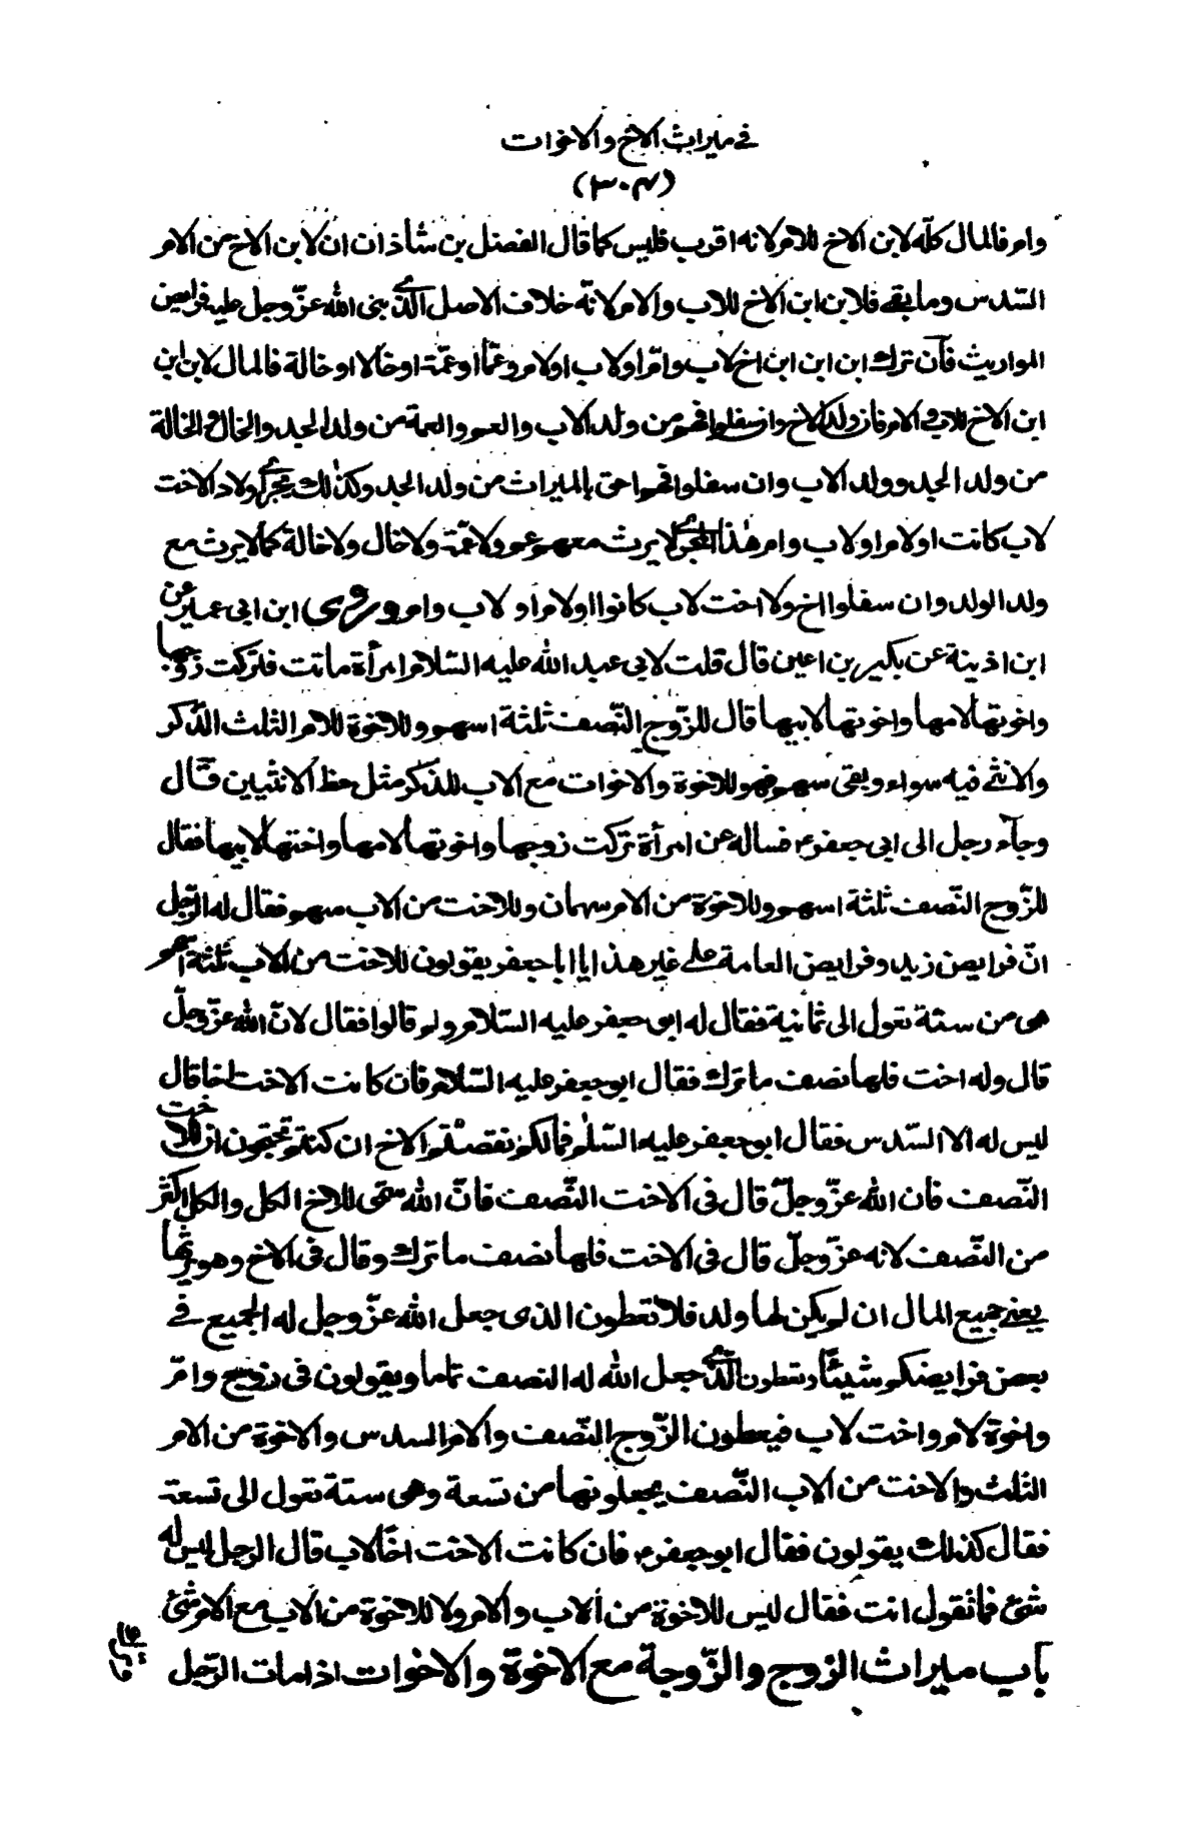 في ميراث الاخ والاخوات
(٣٠٤)
وام فالمال كلّه لابن الاخ للام لانه اقرب فليس كما قال الفضل بن شاذان ان لابن الاخ من الام
السّدس وما بقى فلابن ابن الاخ للاب والام لانّه خلاف الاصل الّذي بنى الله عزّ وجل عليه فرايض
المواريث فآن ترك ابن ابن ابن اخ لاب وامّ او لاب او لام وعمّا او عمّة او خالا او خالة فالمال لابن ابن
ابن الاخ للاب والام فان ولد الاخ وان سفلوا فهم من ولد الاب والعم والعمة من ولد الجد والخال والخالة
من ولد الجد وولد الاب وان سفلوا فهم احق بالميراث من ولد الجد وكذلك يجري اولاد الاخت
لاب كانت او لام او لاب وام هذا المجرى لا يرث معهم عم ولا عمّة ولا خال ولا خالة كما لا يرث مع
ولد الولد وان سفلوا اخ ولا اخت لاب كانوا او لام او لاب وام وروى ابن ابى عمير عن
ابن اذينة عن بكير بن اعين قال قلت لابى عبد الله عليه السّلام امرأة ماتت فتركت زوجها
واخوتها لامها واخوتها لابيها قال للزّوج النّصف ثلثة اسهم وللاخوة للام الثلث الذّكر
والانثى فيه سواء وبقى سهم فهو للاخوة والاخوات مع الاب للذّكر مثل حظ الانثيين قال
وجآء رجل الى ابى جعفر ع فساله عن امرأة تركت زوجها واخوتها لامها واختها لابيها فقال
للزّوج النّصف ثلثة اسهم وللاخوة من الام سهمان وللاخت من الاب سهم فقال له الرّجل
انّ فرايض زيد وفرايض العامة على غير هذا يا ابا جعفر يقولون للاخت من الاب ثلثة اسهم
هى من ستة تعول الى ثمانية فقال له ابو جعفر عليه السّلام ولم قالوا فقال لانّ الله عزّ وجلّ
قال وله اخت فلها نصف ما ترك فقال ابو جعفر عليه السّلام فان كانت الاخت اخا قال
ليس له الا السّدس فقال ابو جعفر عليه السّلم فما لكم نقصتم الاخ ان كنتم تحتجون ان للاخت
النّصف فان الله عزّ وجلّ قال فى الاخت النّصف فانّ الله سمّى للاخ الكل والكل اكثر
من النّصف لانه عزّ وجلّ قال فى الاخت فلها نصف ما ترك وقال فى الاخ وهو يرثها
يعنى جميع المال ان لم يكن لها ولد فلا تعطون الذى جعل الله عزّ وجل له الجميع في
بعض فرايضكم شيئاً وتعطون الّذي جعل الله له النصف تاما ويقولون فى زوج وامّ
واخوة لام واخت لاب فيعطون الزّوج النّصف والام السدس والاخوة من الام
الثلث والاخت من الاب النّصف يجعلونها من تسعة وهى ستة تعول الى تسعة
فقال كذلك يقولون فقال ابو جعفر ع فان كانت الاخت اخا لاب قال الرجل ليس له
شئ فما تقول انت فقال ليس للاخوة من الاب والام ولا للاخوة من الاب مع الام شئ
بآب ميراث الزوج والزّوجة مع الاخوة والاخوات اذا مات الرّجل